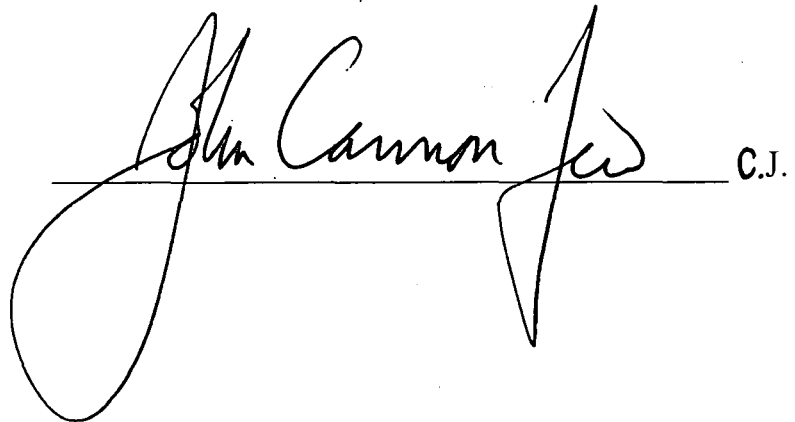 John Cannon Few C.J.